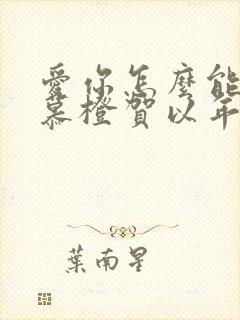 愛你怎麼能
慕橙賀以年
葉南星